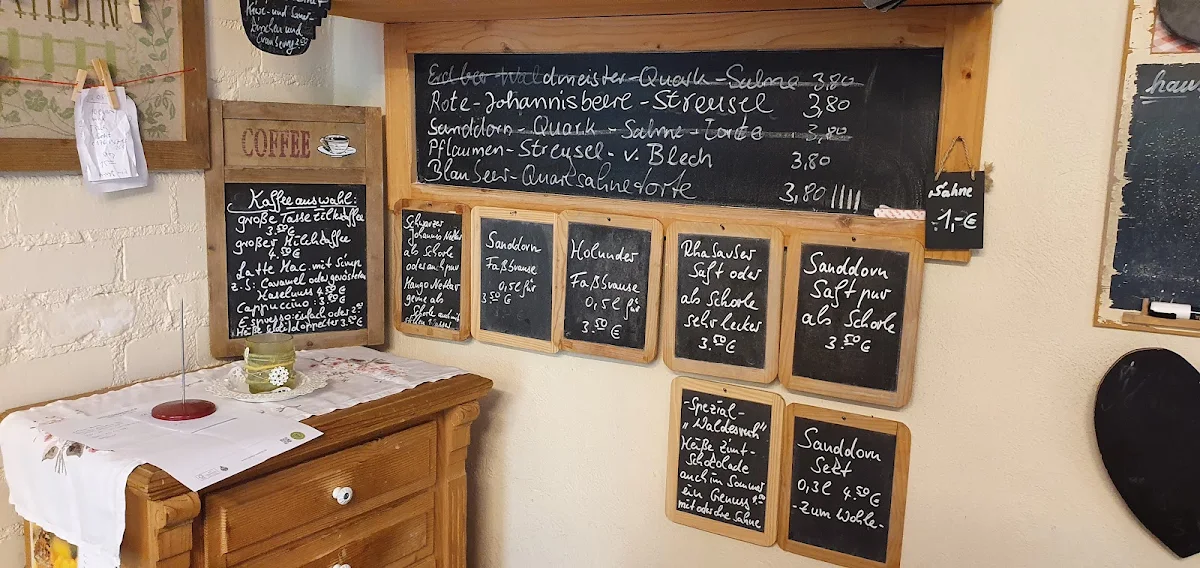 Kiwi- und Sauer-
kirschen und
Cranberry
Erdbeer-Waldmeister-Quark-Sahne 3,80
Rote-Johannisbeere-Streusel 3,80
Sanddorn-Quark-Sahne-Torte 3,80
Pflaumen-Streusel-v. Blech 3,80
Blaubeer-Quarksahnetorte 3,80
Sahne
1,-€
COFFEE
Kaffeeauswahl:
große Tasse Filterkaffee
3.50€
großer Milchkaffee
4.50€
Latte Mac. mit Sirup
z.B: Caramel oder geröstete
Haselnuss 4.50€
Cappuccino: 3.80€
Espresso: einfach oder 2.50
doppelter 3.50€
Schwarzer
Johannis Nektar
als Schorle
oder auch pur
Mango Nektar
gerne als
Schorle auch mit
Sanddorn
Faßbrause
0,5l für
3.50 €
Holunder
Faßbrause
0,5l für
3.50 €
Rhabarber
Saft oder
als Schorle
sehr lecker
3.50 €
Sanddorn
Saft pur
als Schorle
3.50 €
-Spezial-
"Waldesruh"
Heiße Zimt-
Schokolade
auch im Sommer
ein Genuss 4.00
mit oder ohne Sahne
Sanddorn
Sekt
0,3l 4.50 €
-Zum Wohle-